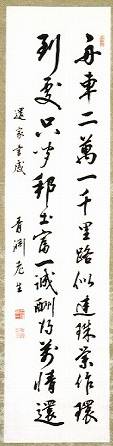 舟車二萬一千里路似連珠業作環
到處只邦土富一誠酬得萬情還
還家書感
青淵老生